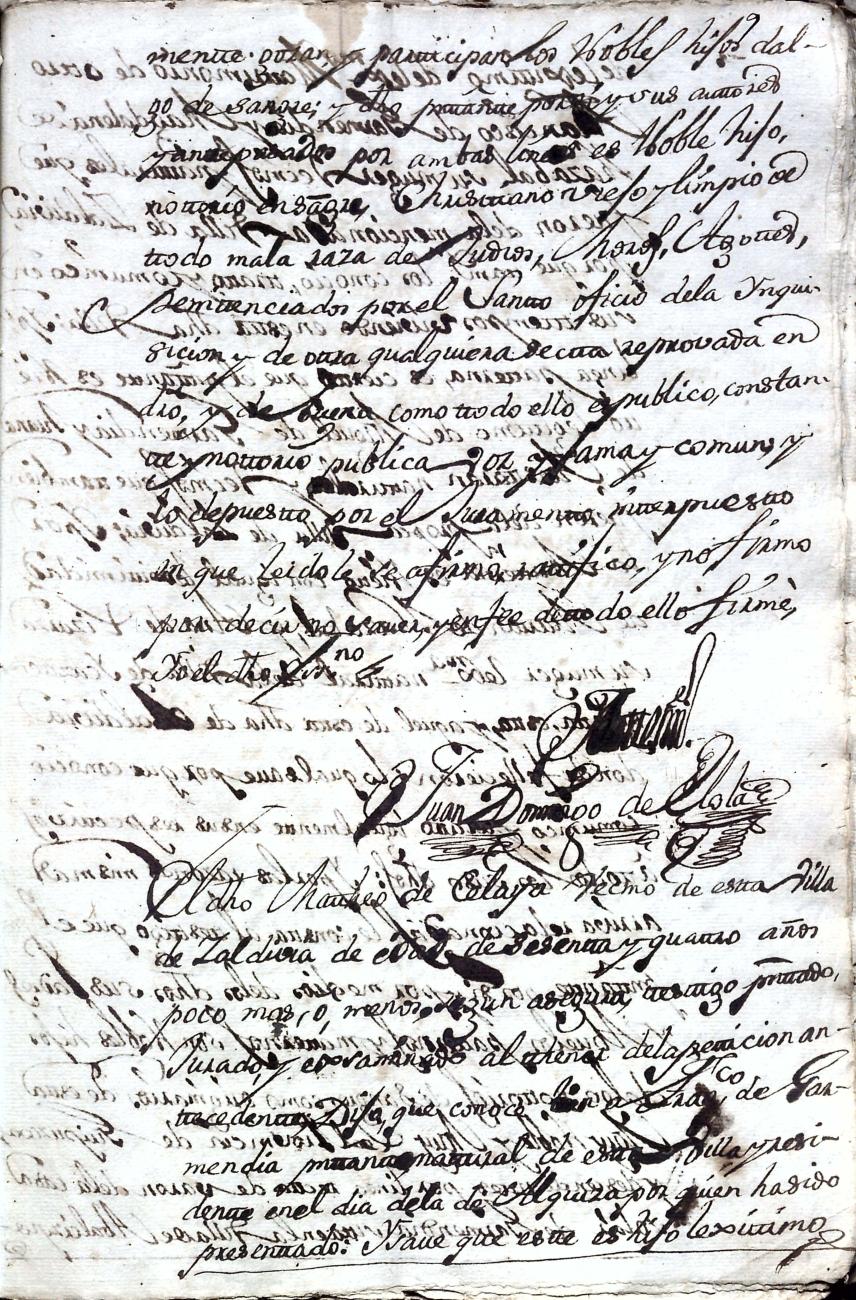 mente gozan y participan los Nobles hijos dal-
go de sangre; y dho pntante por si y sus autores
y antepasados por ambas lineas es Noble hijo,
nottorio en sangre, Christiano viejo y limpio de
ttodo mala raza de Judios, Moros, Agotes,
Penitenciados por el Santto oficio dela Ynqui-
sicion y de otra qualquiera sectta reprovada en
dro, y de buena como ttodo ello es publico, constan-
tte y nottorio publica voz y fama y comun, y
lo depuestto por el Juramentto intterpuestto
en que leidole se afirmo rattifico, y no firmo
por decir no saver, y en fee de ttodo ello firmè,
Yo el dho Essno
Juan Domingo de Olola
El dho Matheo de Celaya Vecino de estta Villa
de Zaldivia de edad de sesentta y quattro años
poco mas, ó menos, segun asegura, testtigo pnttado,
Jurado, y exsaminado al thenor dela petticion an-
ttecedentte, Dijo, que conoce bien a Franco, de Gar-
mendia pnttante nattural de estta Villa y resi-
dentte en el dia dela de Alquiza por quien ha sido
presenttado: Y save que estte es hijo lexittimo